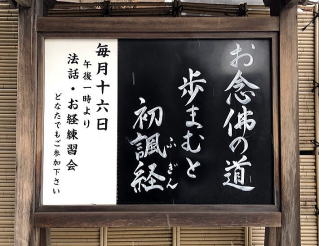 お念佛の道
歩まむと
初諷経
ふぎん
毎月十六日
午後一時より
法話・お経練習会
どなたでもご参加下さい